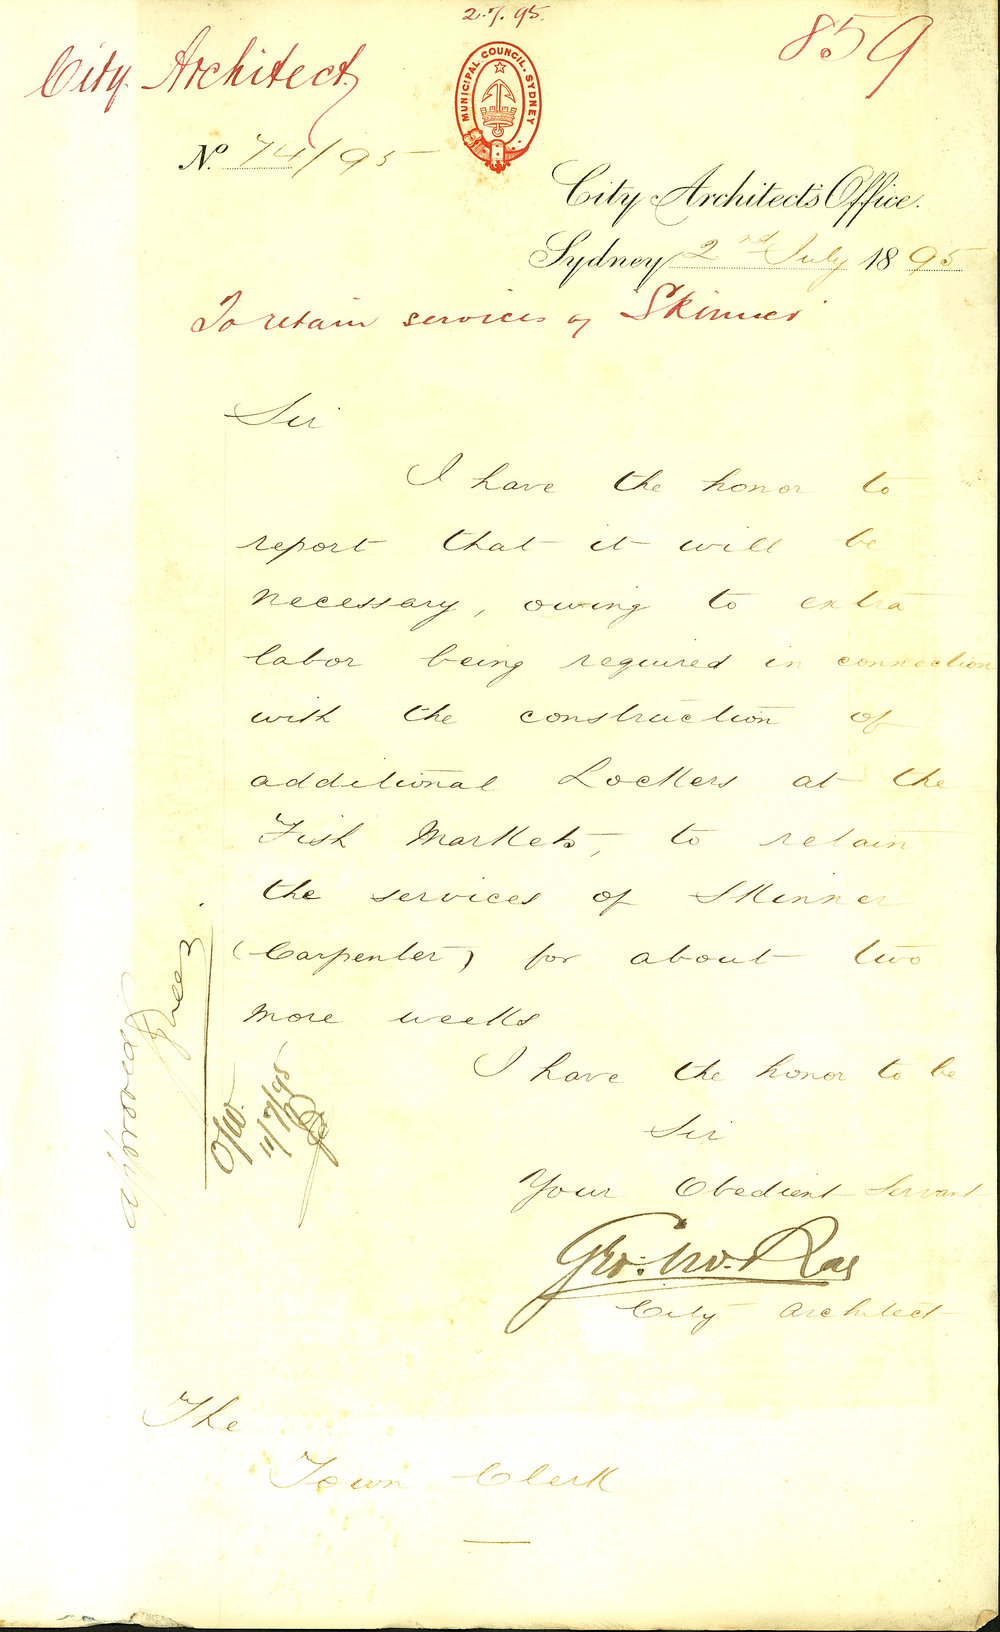 2.7.95.
859
City Architect
MUNICIPAL COUNCIL. SYDNEY
No. 74/95
City Architect's Office.
Sydney 2nd July 1895
To retain services of "Skinner"
Sir
I have the honor to
report that it will be
necessary, owing to extra
labor being required in connection
with the construction of
additional Lockers at the
Fish Markets, to retain
the services of Skinner
(Carpenter) for about two
more weeks
I have the honor to be
Sir
Your Obedient Servant
Geo: McRae
City Architect
Approved
11/7/95
The
Town Clerk